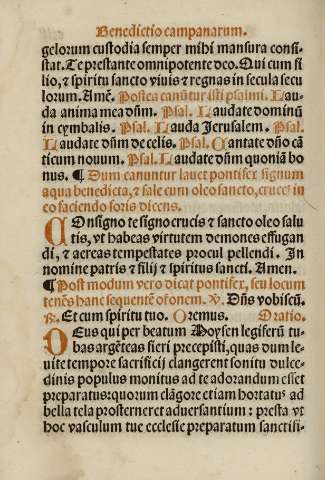 Benedictio campanarum.
gelorum custodia semper mihi mansura consi⸗
stat. Te prestante omnipotente deo. Qui cum fi
lio, & spiritu sancto viuis & regnas in secula secu
lorum. Amē. Postea canūtur isti psalmi. Lau⸗
da anima mea dñm. Psal. Laudate dominū
in cymbalis. Psal. Lauda Jerusalem. Psal.
Laudate dñm de celis. Psal. Cantate dño cā
ticum nouum. Psal. Laudate dñm quoniā bo
nus. ¶ Dum canuntur lauet pontifex signum
aqua benedicta, & sale cum oleo sancto, cruces in
eo faciendo foris dicens.
COnsigno te signo crucis & sancto oleo salu
tis, vt habeas virtutem demones effugan
di, & aereas tempestates procul pellendi. In
nomine patris & filij & spiritus sancti. Amen.
¶ Post modum vero dicat pontifex, seu locum
tenēs hanc sequentē orōnem. ℣. Dñs vobiscū.
℟. Et cum spiritu tuo. Oremus. Oratio.
DEus qui per beatum Moysen legiferū tu⸗
bas argēteas fieri precepisti, quas dum le⸗
uite tempore sacrificij clangerent sonitu dulce⸗
dinis populus monitus ad te adorandum esset
preparatus: quorum clāgore etiam hortatus ad
bella tela prosterneret aduersantium: presta vt
hoc vasculum tue ecclesie preparatum sanctifi⸗